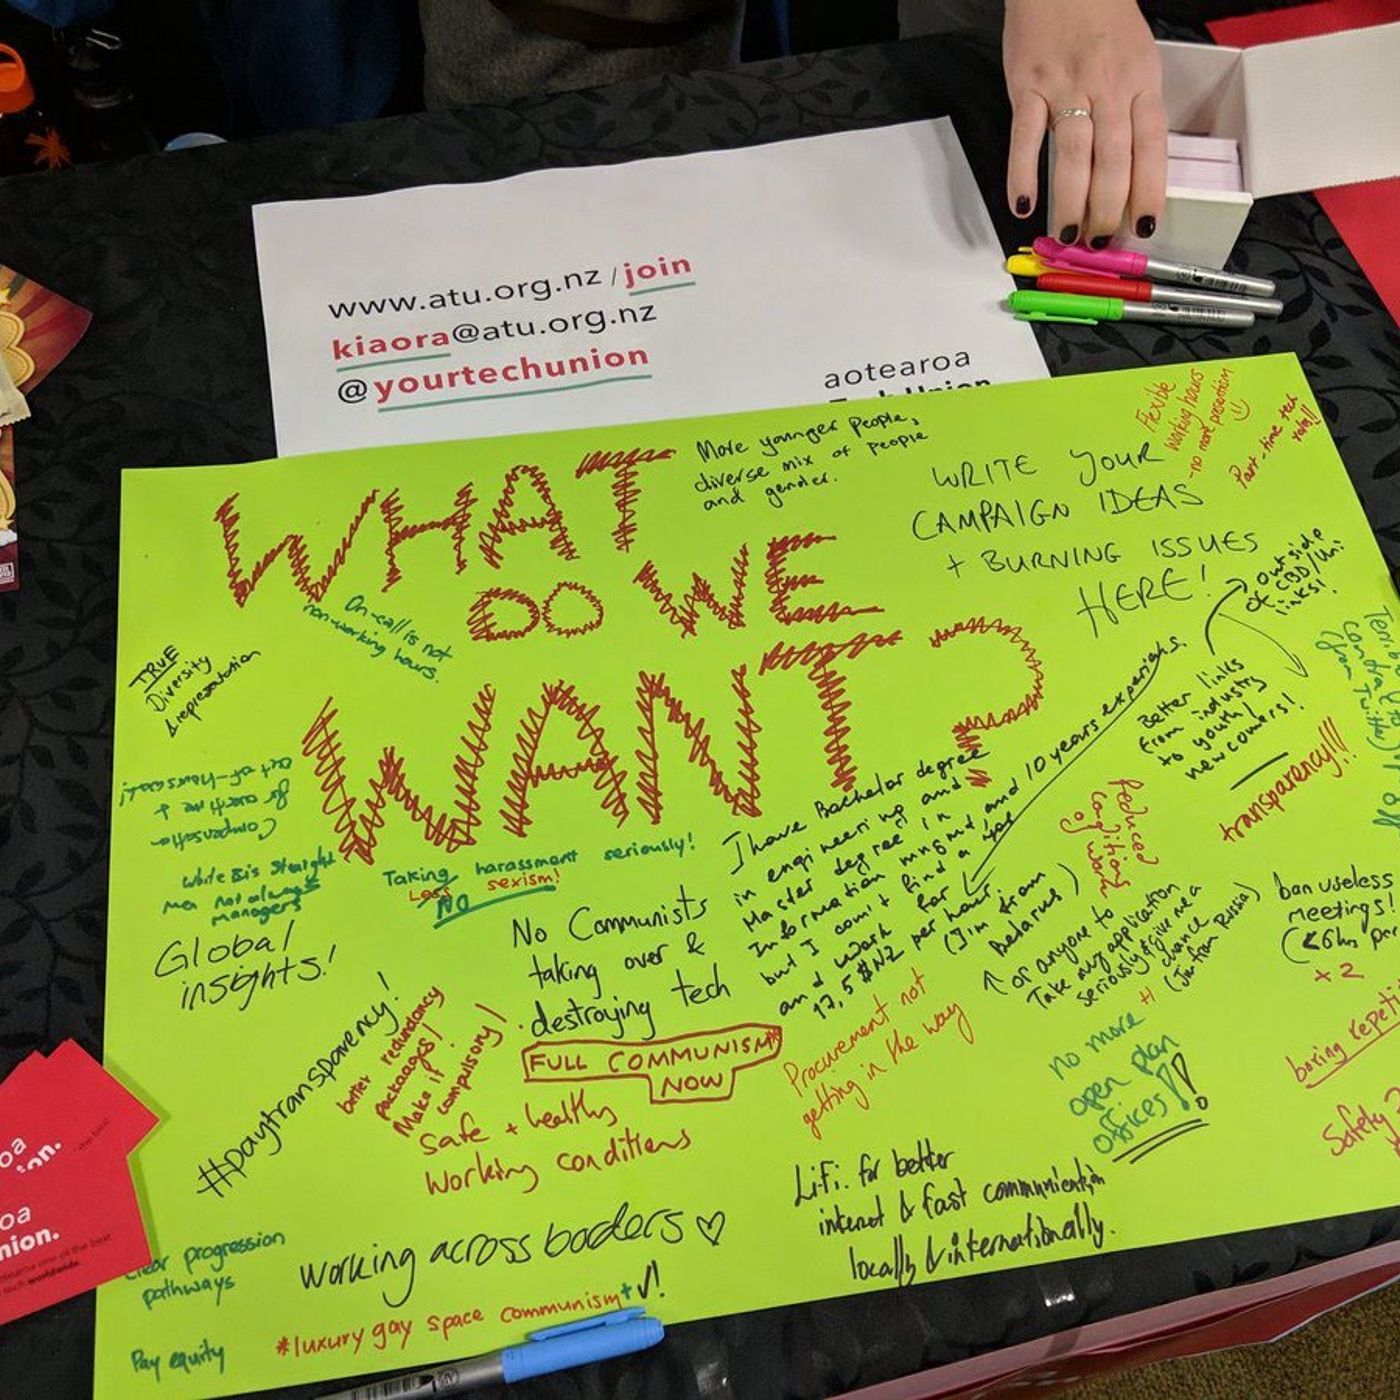 www.atu.org.nz / join
kiaora@atu.org.nz
@yourtechunion
aotearoa
Tech Union
WHAT
DO WE
WANT?
More younger people,
diverse mix of people
and gender.
WRITE YOUR
CAMPAIGN IDEAS
+ BURNING ISSUES
HERE!
Flexible
working hours
-no more presenteeism
Part-time tech
roles!!
outside
of CBD/Uni
links!
Better links
from industry
to youth/
newcomers!
On-call is not
non-working hours.
TRUE
Diversity
& representation
Compensation
for overtime +
out-of-hours
White Bis Straight
men not always
managers
Taking harassment seriously!
Less sexism!
NO
Global
insights!
No Communists
taking over &
destroying tech
FULL COMMUNISM
NOW
I have Bachelor degree
in engineering and
Master degree in
Information mngmnt and 10 years experichs.
but I comit find a job
and work for
17,5 $NZ per hour
(Jim from
Belarus)
↑ or anyone to
Take my application
seriously & give me a
chance
(Jim from Russia)
+1
Reduced
conditions
of work
transparency!!!
Terrible
(from Twitter)
off
ban useless
meetings!
(<6hrs per
+ 2
boring
Safety
#paytransparency!
better redundancy
packages!
Make it
compulsory!
Safe + healthy
Working conditions
Procurement not
getting in the way
no more
open plan
offices!!
LiFi. for better
internet & fast communication
locally & internationally.
working across borders ♡
clear progression
pathways
Pay equity
*luxury gay space communism + √!
oa
on.
oa
nion.
one of the best
tech worldwide.